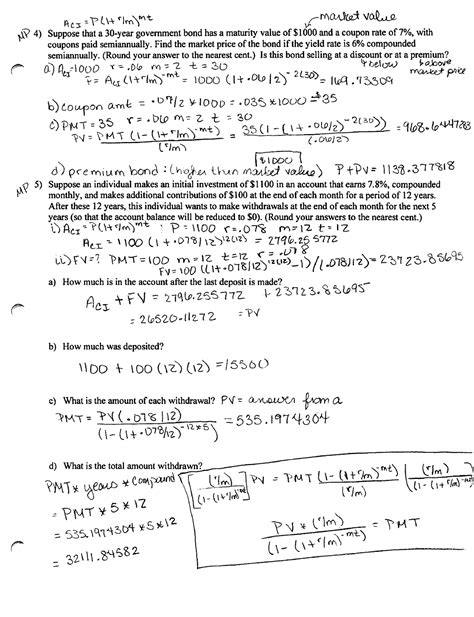 A_CI = P(1+r/m)^mt
market value
MP 4) Suppose that a 30-year government bond has a maturity value of $1000 and a coupon rate of 7%, with
coupons paid semiannually. Find the market price of the bond if the yield rate is 6% compounded
semiannually. (Round your answer to the nearest cent.) Is this bond selling at a discount or at a premium?
below above market price
a) A_CI=1000 r=.06 m=2 t=30
P = A_CI (1+r/m)^-mt = 1000 (1+.06/2)^-2(30) = 169.73309
b) coupon amt = .07/2 × 1000 = .035 × 1000 = $35
c) PMT = 35 r = .06 m = 2 t = 30
PV = PMT (1-(1+r/m)^-mt) / (r/m) = 35(1-(1+.06/2)^-2(30)) / (.06/2) = 968.644783
$1000
d) premium bond : (higher than market value) P+PV = 1138.377818
MP 5) Suppose an individual makes an initial investment of $1100 in an account that earns 7.8%, compounded
monthly, and makes additional contributions of $100 at the end of each month for a period of 12 years.
After these 12 years, this individual wants to make withdrawals at the end of each month for the next 5
years (so that the account balance will be reduced to $0). (Round your answers to the nearest cent.)
i) A_CI = P(1+r/m)^mt : P = 1100 r=.078 m=12 t=12
A_CI = 1100 (1+.078/12)^12(12) = 2796.255772
ii) FV=? PMT=100 m=12 t=12 r=.078
FV = 100 ((1+.078/12)^12(12) -1)/(.078/12) = 23723.85695
a) How much is in the account after the last deposit is made?
A_CI + FV = 2796.255772 + 23723.85695
= 26520.11272 = PV
b) How much was deposited?
1100 + 100(12)(12) = 15500
c) What is the amount of each withdrawal? PV = answer from a
PMT = PV(.078/12) / (1-(1+.078/12)^-12*5) = 535.1974304
d) What is the total amount withdrawn?
PMT * years * compound
= PMT * 5 * 12
= 535.1974304 * 5 * 12
= 32111.84582
[(r/m) / (1-(1+r/m)^-mt)] PV = PMT (1-(1+r/m)^-mt) / (r/m) [(r/m) / (1-(1+r/m)^-mt)]
PV * (r/m) / (1-(1+r/m)^-mt) = PMT